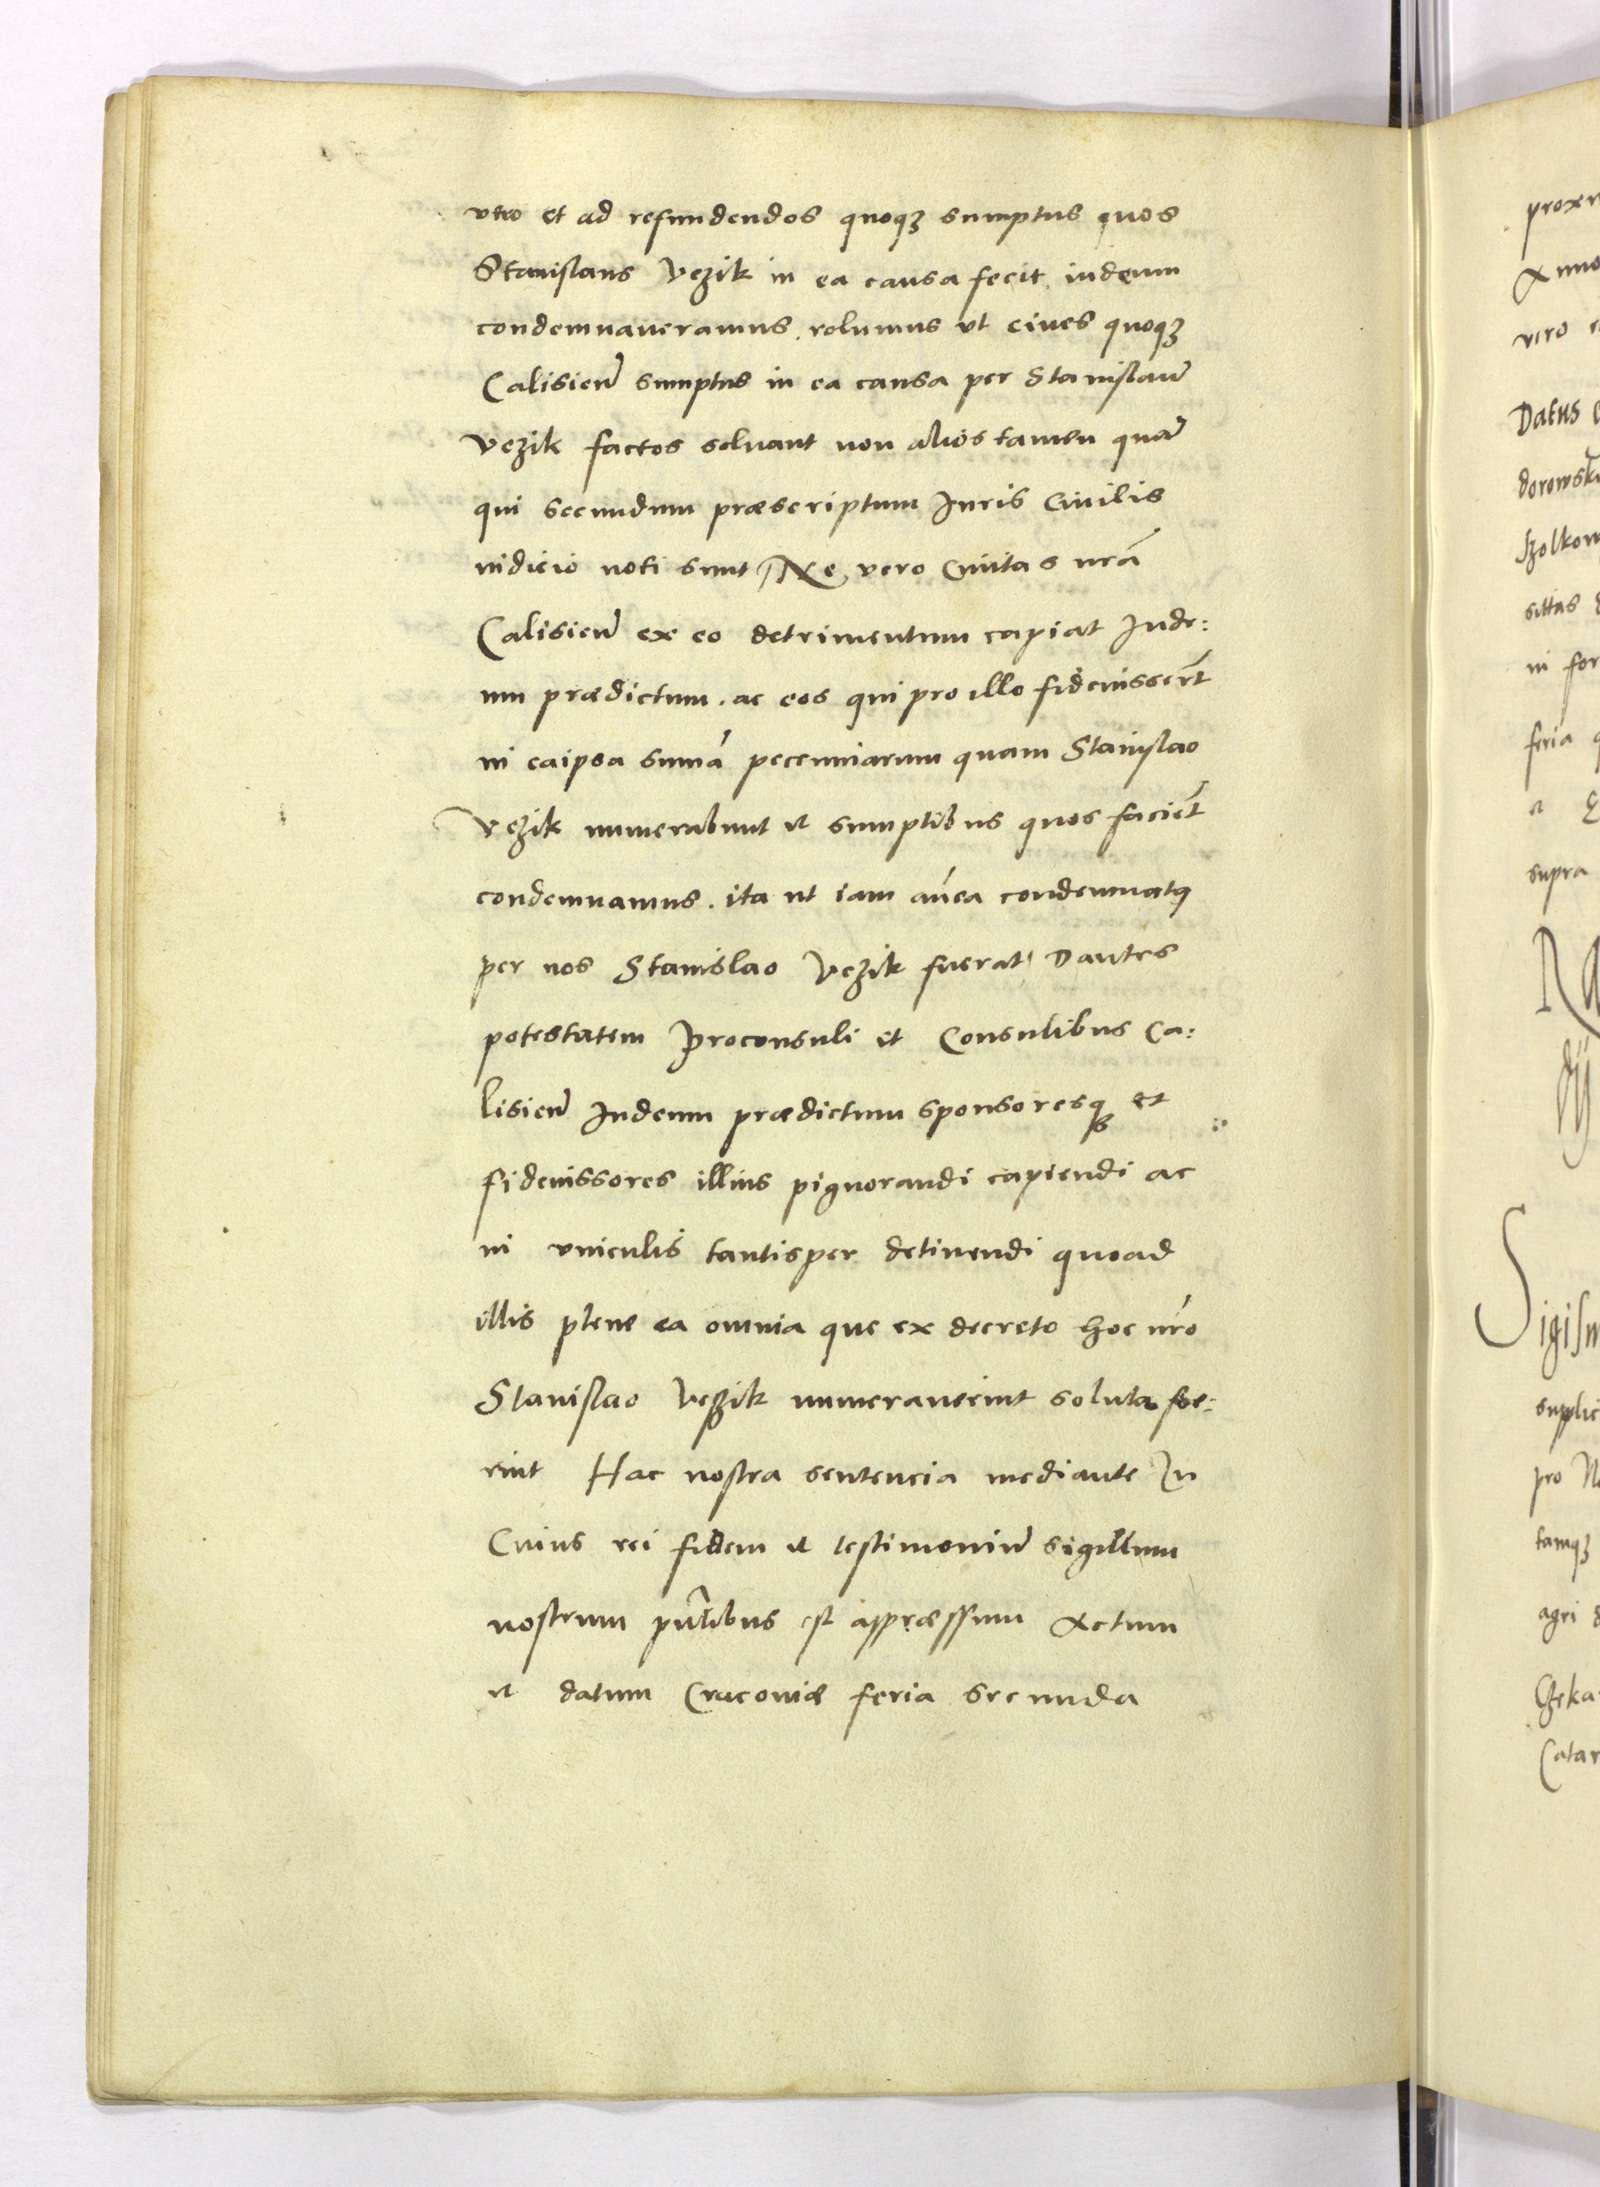 vero et ad refundendos quoqz sumptus quos
Stanislaus Vezik in ea causa fecit iudeum
condemnaueramus. volumus vt ciues quoqz
Calisien̄ sumptus in ea causa per Stanislaū
Vezik factos soluant non alios tamen quā
qui secundum præscriptum Iuris Ciuilis
iudicio noti sunt Ne vero Ciuitas nrā
Calisien̄ ex eo detrimentum capiat Iude:
um prædictum. ac eos qui pro illo fideiusserūt
in eaipsa sumā pecuniarum quam Stanislao
Vezik numerabunt et sumptibus quos faciēt
condemnamus. ita ut iam an̄ea condemnatq
per nos Stanislao Vezik fuerat Dantes
potestatem Proconsuli et Consulibus Ca:
lisien̄ Iudeum prædictum sponsoresqz et
fideiussores illius pignorandi capiendi ac
in vinculis tantisper detinendi quoad
illis plene ea omnia que ex decreto hoc nr̄o
Stanislao Vezik numerauerint soluta fue:
rint Hac nostra sentencia mediante In
Cuius rei fidem et testimoniū sigillum
nostrum pn̄tibus est appræssum Actum
et datum Cracouiæ feria secunda
proxi
Anno
vero
Datus
dorowsk
Szolkow
sittas
in for
feria
et
supra
Sigism
supplic
pro
tamqz
agri
Czeka
Catar